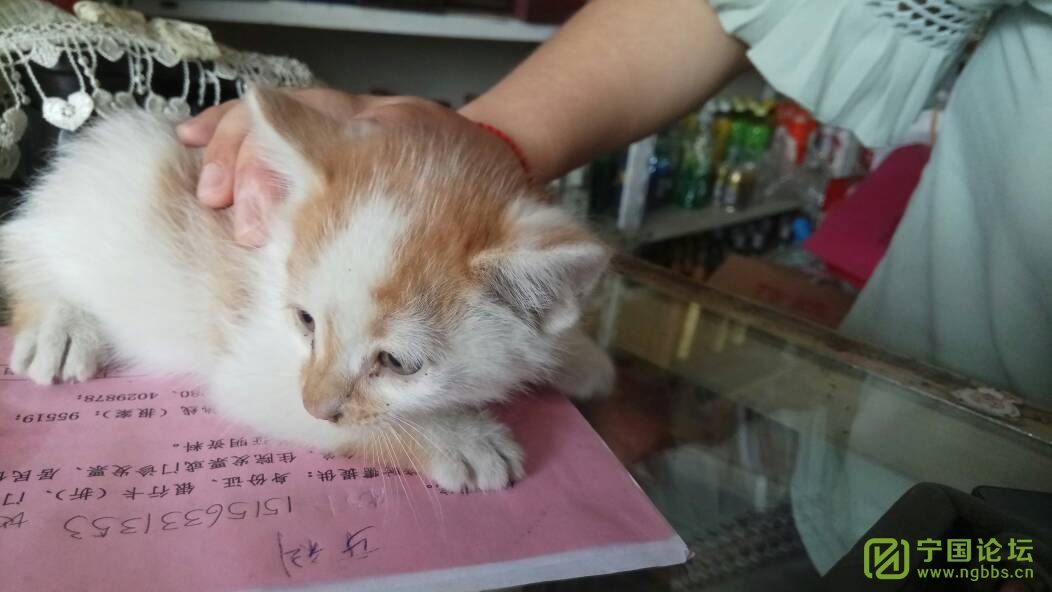 15156331353
提供：身份证、银行卡（折）、门
住院发票或门诊发票、居民
证明资料。
线（报案）：95519；
80、4029878；
宁国论坛
www.ngbbs.cn